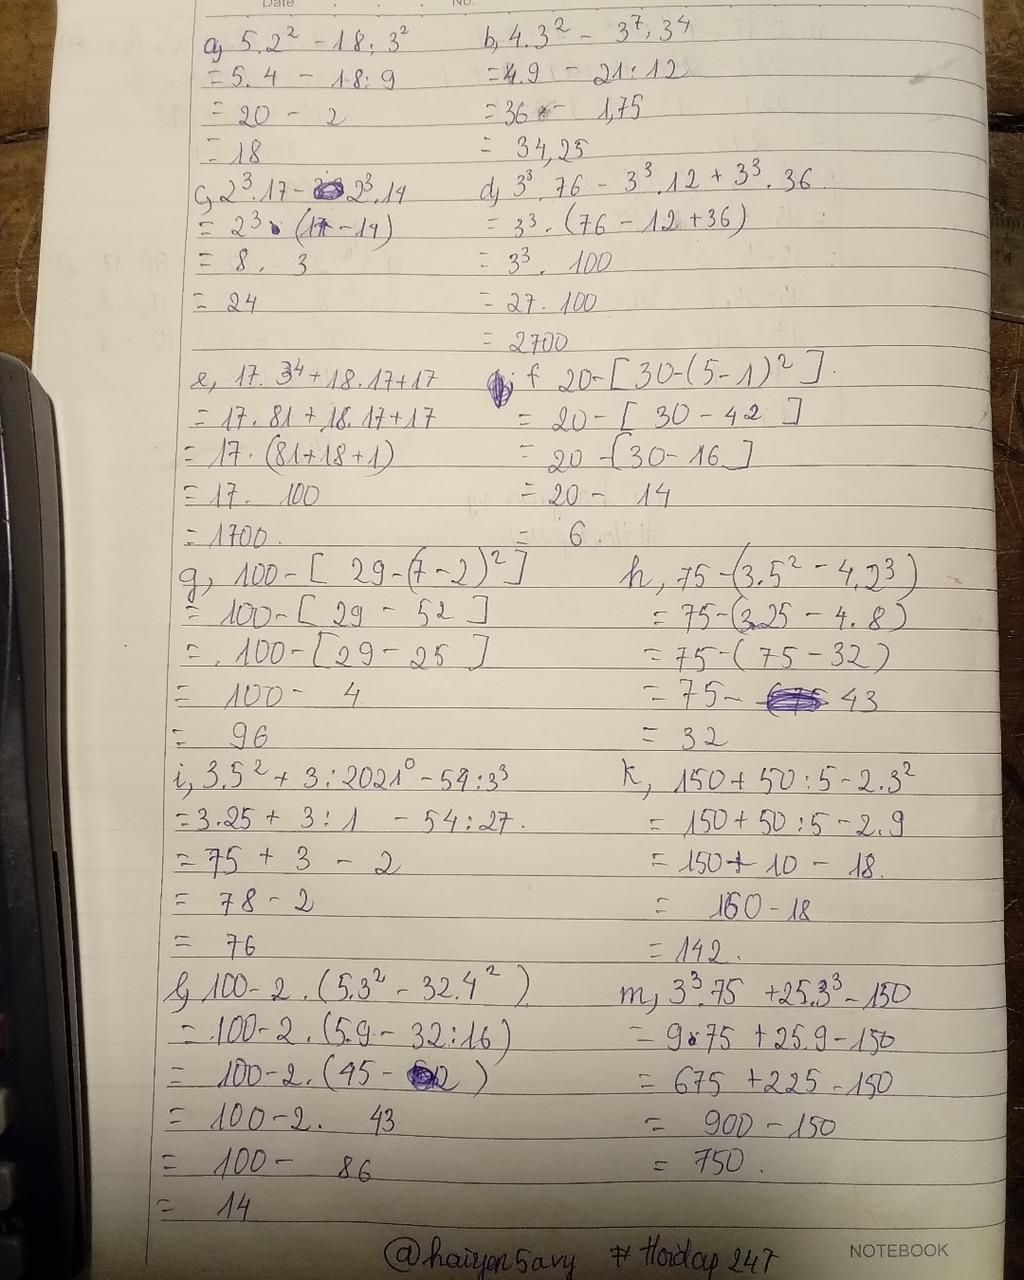 Date No.
a, 5.2² - 18 : 3²
= 5.4 - 18 : 9
= 20 - 2
= 18
b, 4.3² - 3⁷ : 3⁴
= 4.9 - 21 : 12
= 36 - 1,75
= 34,25
c, 2³.17 - 2³.14
= 2³ . (17 - 14)
= 8 . 3
= 24
d, 3³.76 - 3³.12 + 3³.36
= 3³ . (76 - 12 + 36)
= 3³ . 100
= 27 . 100
= 2700
e, 17.3⁴ + 18.17 + 17
= 17.81 + 18.17 + 17
= 17 . (81 + 18 + 1)
= 17 . 100
= 1700.
f 20 - [30 - (5 - 1)²]
= 20 - [30 - 42]
= 20 - [30 - 16]
= 20 - 14
= 6.
g, 100 - [29 - (7 - 2)²]
= 100 - [29 - 52]
= 100 - [29 - 25]
= 100 - 4
= 96
h, 75 - (3.5² - 4.2³)
= 75 - (3.25 - 4.8)
= 75 - (75 - 32)
= 75 - 43
= 32
i, 3.5² + 3 : 2021⁰ - 54 : 3³
= 3.25 + 3 : 1 - 54 : 27.
= 75 + 3 - 2
= 78 - 2
= 76
k, 150 + 50 : 5 - 2.3²
= 150 + 50 : 5 - 2.9
= 150 + 10 - 18.
= 160 - 18
= 142.
l, 100 - 2 . (5.3² - 32.4²)
= 100 - 2 . (5.9 - 32 : 16)
= 100 - 2 . (45 - 2)
= 100 - 2 . 43
= 100 - 86
= 14
m, 3³.75 + 25.3³ - 150
= 9.75 + 25.9 - 150
= 675 + 225 - 150
= 900 - 150
= 750.
@haiyen5avy # Hoidap 247
NOTEBOOK